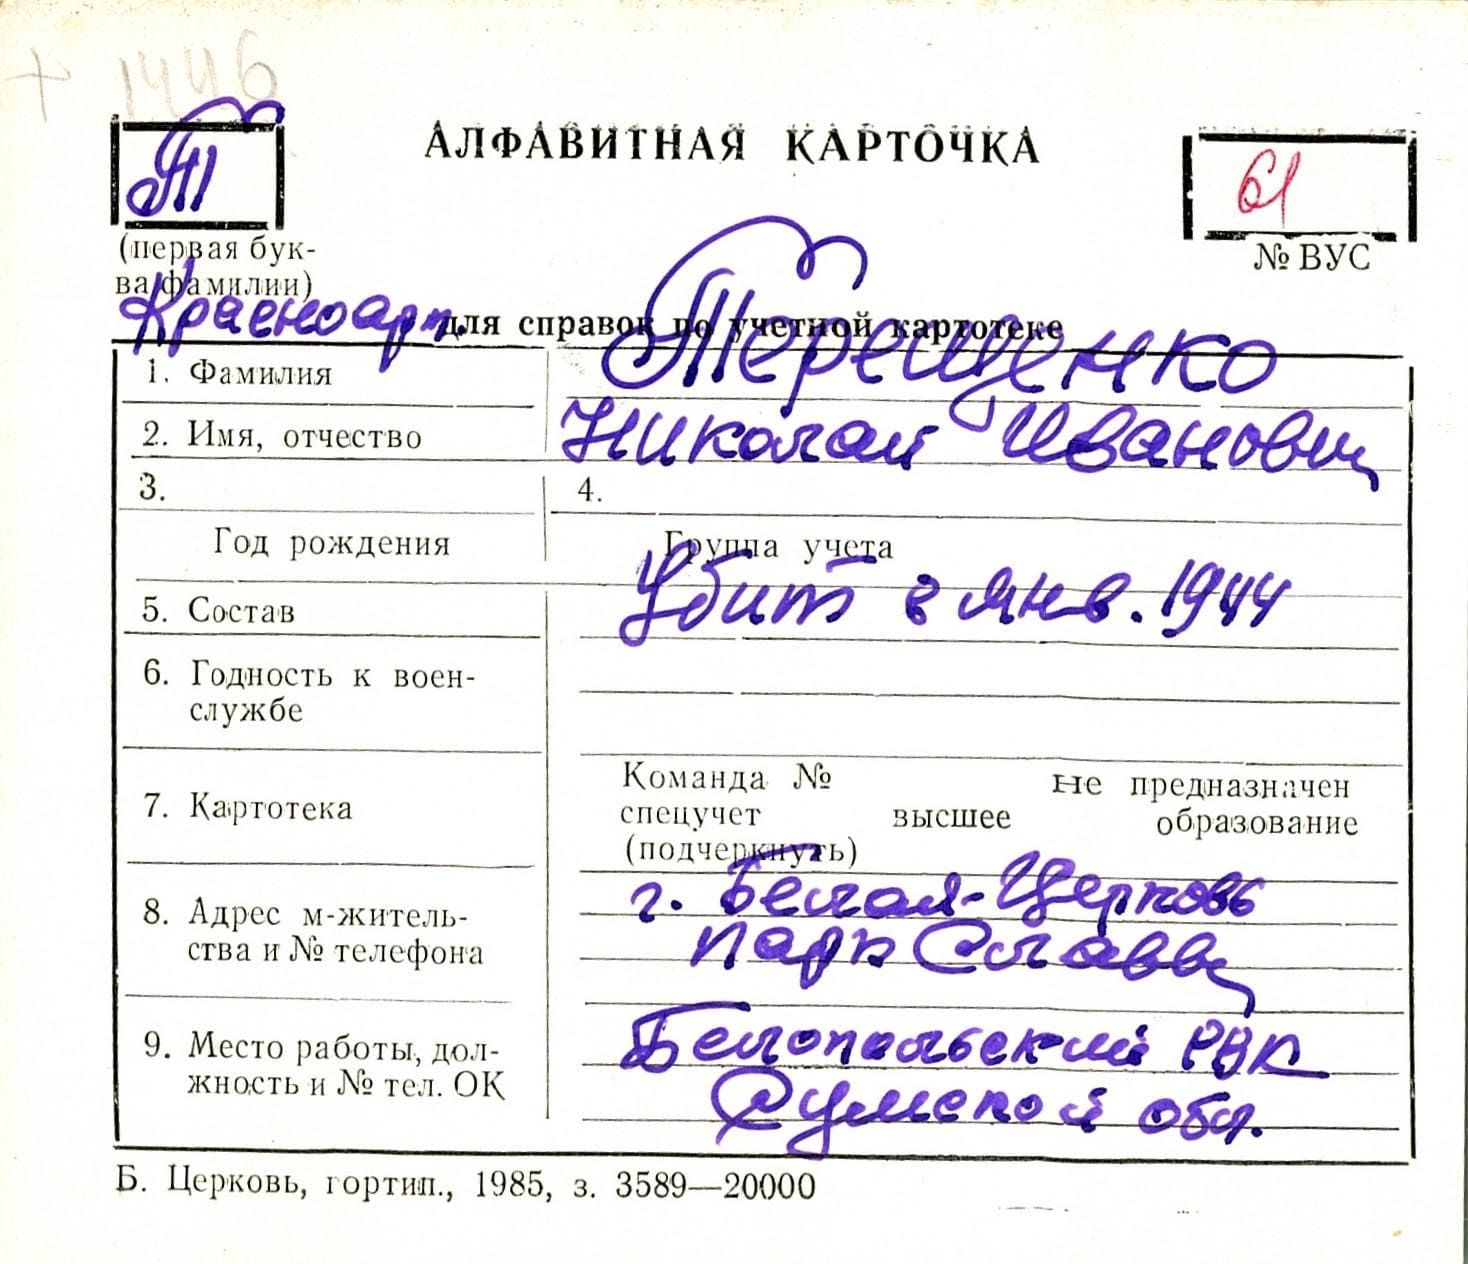 + 1446
Т
АЛФАВИТНАЯ КАРТОЧКА
61
(первая бук-
ва фамилии)
№ ВУС
Красноарм.
для справок по учетной картотеке
1. Фамилия Терещенко
2. Имя, отчество Николай Иванович
3. 4.
Год рождения Группа учета
5. Состав Убит в янв. 1944
6. Годность к воен-
службе
Команда № не предназначен
7. Картотека спецучет высшее образование
(подчеркнуть)
8. Адрес м-житель- г. Белая-Церковь
ства и № телефона парк Славы
9. Место работы, дол- Белопольский РВК
жность и № тел. ОК Сумской обл.
Б. Церковь, гортип., 1985, з. 3589—20000